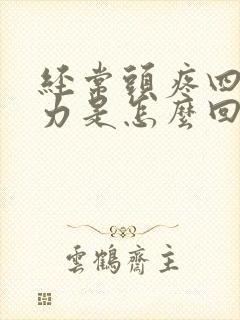 經常頭疼四
力是怎麼回
雲鶴齋主